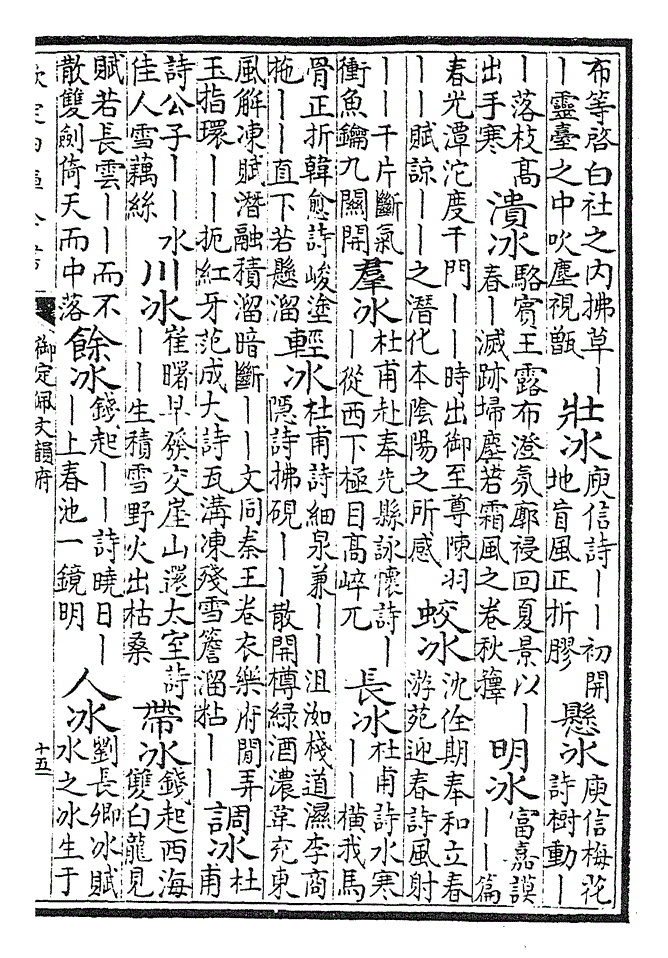 布等啓白社之内拂草丨
丨靈臺之中吹塵視甑
壯冰
庾信詩丨丨初開
地盲風正折膠
懸冰
庾信梅花
詩樹動丨
丨落枝高
出手寒
潰冰
駱賓王露布澄氛廓祲回夏景以丨
春丨滅跡埽塵若霜風之卷秋籜
明冰
富嘉謨
丨丨篇
春光潭沱度千門丨丨時出御至尊陳羽
丨丨賦諒丨丨之潛化本陰陽之所感
蛟冰
沈佺期奉和立春
游苑迎春詩風射
丨丨千片斷氣
衝魚鑰九關開
羣冰
杜甫赴奉先縣詠懷詩丨
丨從西下極目高崒兀
長冰
杜甫詩水寒
丨丨橫我馬
骨正折韓愈詩峻塗
拖丨丨直下若懸溜
輕冰
杜甫詩細泉兼丨丨沮洳棧道濕李商
隱詩拂硯丨丨散開樽緑酒濃草充東
風解凍賦潛融積溜暗斷丨丨文同秦王卷衣樂府閒弄
玉指環丨丨扼紅牙范成大詩瓦溝凍殘雪簷溜粘丨丨
調冰
杜
甫
詩公子丨丨水
佳人雪藕絲
川冰
崔曙早發交崖山還太室詩
丨丨生積雪野火出枯桑
帶冰
錢起西海
雙白龍見
賦若長雲丨丨而不
散雙劍倚天而中落
餘冰
錢起丨丨詩曉日丨
丨上春池一鏡明
人冰
劉長卿冰賦
水之冰生于
御定佩文韻府
十五